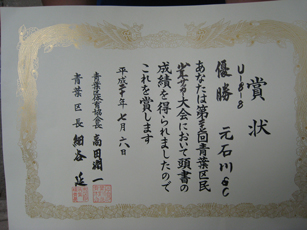 賞状
U-8の部
優勝 元石川SC
あなたは第
回青葉区民
大会において頭書の
成績を得られましたので
これを賞します
平成二十年七月六日
青葉区体育協会長 高田潤一
青葉区長 細谷延